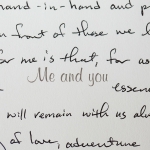 hand-in-hand and p
front of these we l
for me is that, for as
Me and you
essence
will remain with us al
of love, adventure